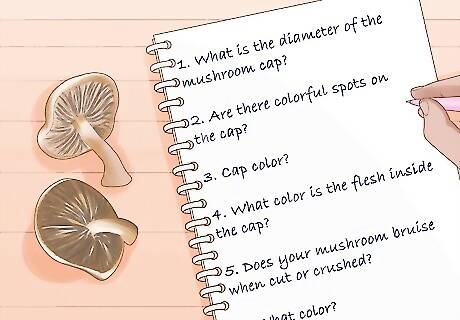 1. What is the diameter of the
mushroom cap?
2. Are there colorful spots on
the cap?
3. Cap color?
4. What color is the flesh inside
the cap?
5. Does your mushroom bruise
when cut or crushed?
What color?